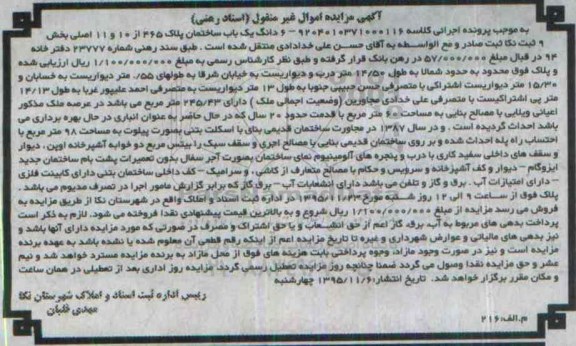 آگهی مزایده اموال غیر منقول (اسناد رهنی)
به موجب پرونده اجرائی کلاسه ۹۲۰۴۰۱۰۳۷۱۰۰۰۱۱۶ - ۶ دانگ یک باب ساختمان پلاک ۴۶۵ از ۱۰ و ۱۱ اصلی بخش
۹ ثبت نکا ثبت صادر و مع الواسطه به آقای حسن علی خدادادی منتقل شده است . طبق سند رهنی شماره ۲۳۷۷۷ دفتر خانه
۹۴ در قبال مبلغ ۵۷/۰۰۰/۰۰۰ در رهن بانک قرار گرفته و طبق نظر کارشناس رسمی به مبلغ ۱/۱۰۰/۰۰۰/۰۰۰ ریال ارزیابی شده
و پلاک فوق محدود به حدود شمالا به طول ۴/۵۰ متر درب و دیواریست به خیابان شرقا به طولهای ۵۵/. متر دیواریست به خسابان و
۱۵/۳۰ متر دیواریست اشتراکی با متصرفی حسن حبیبی جنوبا به طول ۱۳ متر دیواریست به متصرفی احمد علیپور غربا به طول ۱۴/۱۳
متر پی اشتراکیست با متصرفی علی خدادی مجاورین (وضعیت اجمالی ملک ) دارای ۲۴۵/۴۳ متر مربع می باشد در عرصه ملک مذکور
اعیانی ویلایی با مصالح بنایی به مساحت ۶۰ متر مربع با قدمت حدود ۲۰ سال که در حال حاضر به عنوان انباری در حال بهره برداری می
باشد احداث گردیده است . و در سال ۱۳۸۷ در مجاورت ساختمان قدیمی بنای با اسکلت بتنی بصورت پیلوت به مساحت ۹۸ متر مربع با
احتساب راه پله احداث شده و بر روی ساختمان قدیمی بنایی با مصالح آجری و سقف سبک را بیتس مربع دو خوابه آشپزخانه اوپن، دیوار
و سقف های داخلی سفید کاری با درب و پنجره های آلومینیوم نمای ساختمان بصورت آجر سفال بدون تعمیرات پشت بام ساختمان جدید
ایزوگام – دیوار و کف آشپزخانه و سرویس و حکام با مصالح متعارف از کاشی ، و سرامیک – کف داخلی ساختمان بتنی دارای کابینت فلزی
– دارای امتیازات آب . برق و گاز و تلفن می باشد دارای انشعابات آب – برق گاز که برابر گزارش مامور اجرا در تصرف مدیوم می باشد .
پلاک فوق از ساعت ۹ الی ۱۲ روز شنبه مورخ ۱۳۹۵/۱۱/۲۳ در اداره ثبت اسناد و املاک واقع در شهرستان نکا از طریق مزایده به
فروش می رسد مزایده از مبلغ ۱/۱۰۰/۰۰۰/۰۰۰ ریال شروع و به بالاترین قیمت پیشنهادی نقدا فروخته می شود. لازم به ذکر است
پرداخت بدهی های مربوط به آب، برق، گاز اعم از حق انشعاب و یا حق اشتراک و مصرف در صورتی که مورد مزایده دارای آنها باشد و
نیز بدهی های مالیاتی و عوارض شهرداری و غیره تا تاریخ مزایده اعم از اینکه رقم قطعی آن معلوم شده یا نشده باشد به عهده برنده
مزایده است و نیز در صورت وجود مازاد، وجوه پرداختی بابت هزینه های فوق از محل مازاد به برنده مزایده مسترد خواهد شد و نیم
عشر و حق مزایده نقدا وصول می گردد ضمنا چنانچه روز مزایده تعطیل رسمی گردد، مزایده روز اداری بعد از تعطیلی در همان ساعت
و مکان مقرر برگزار خواهد شد. تاریخ انتشار: ۱۳۹۵/۱۱/۶ چهارشنبه
رییس اداره ثبت اسناد و املاک شهرستان نکا
مهدی خلبان
م.الف: ۲۱۶